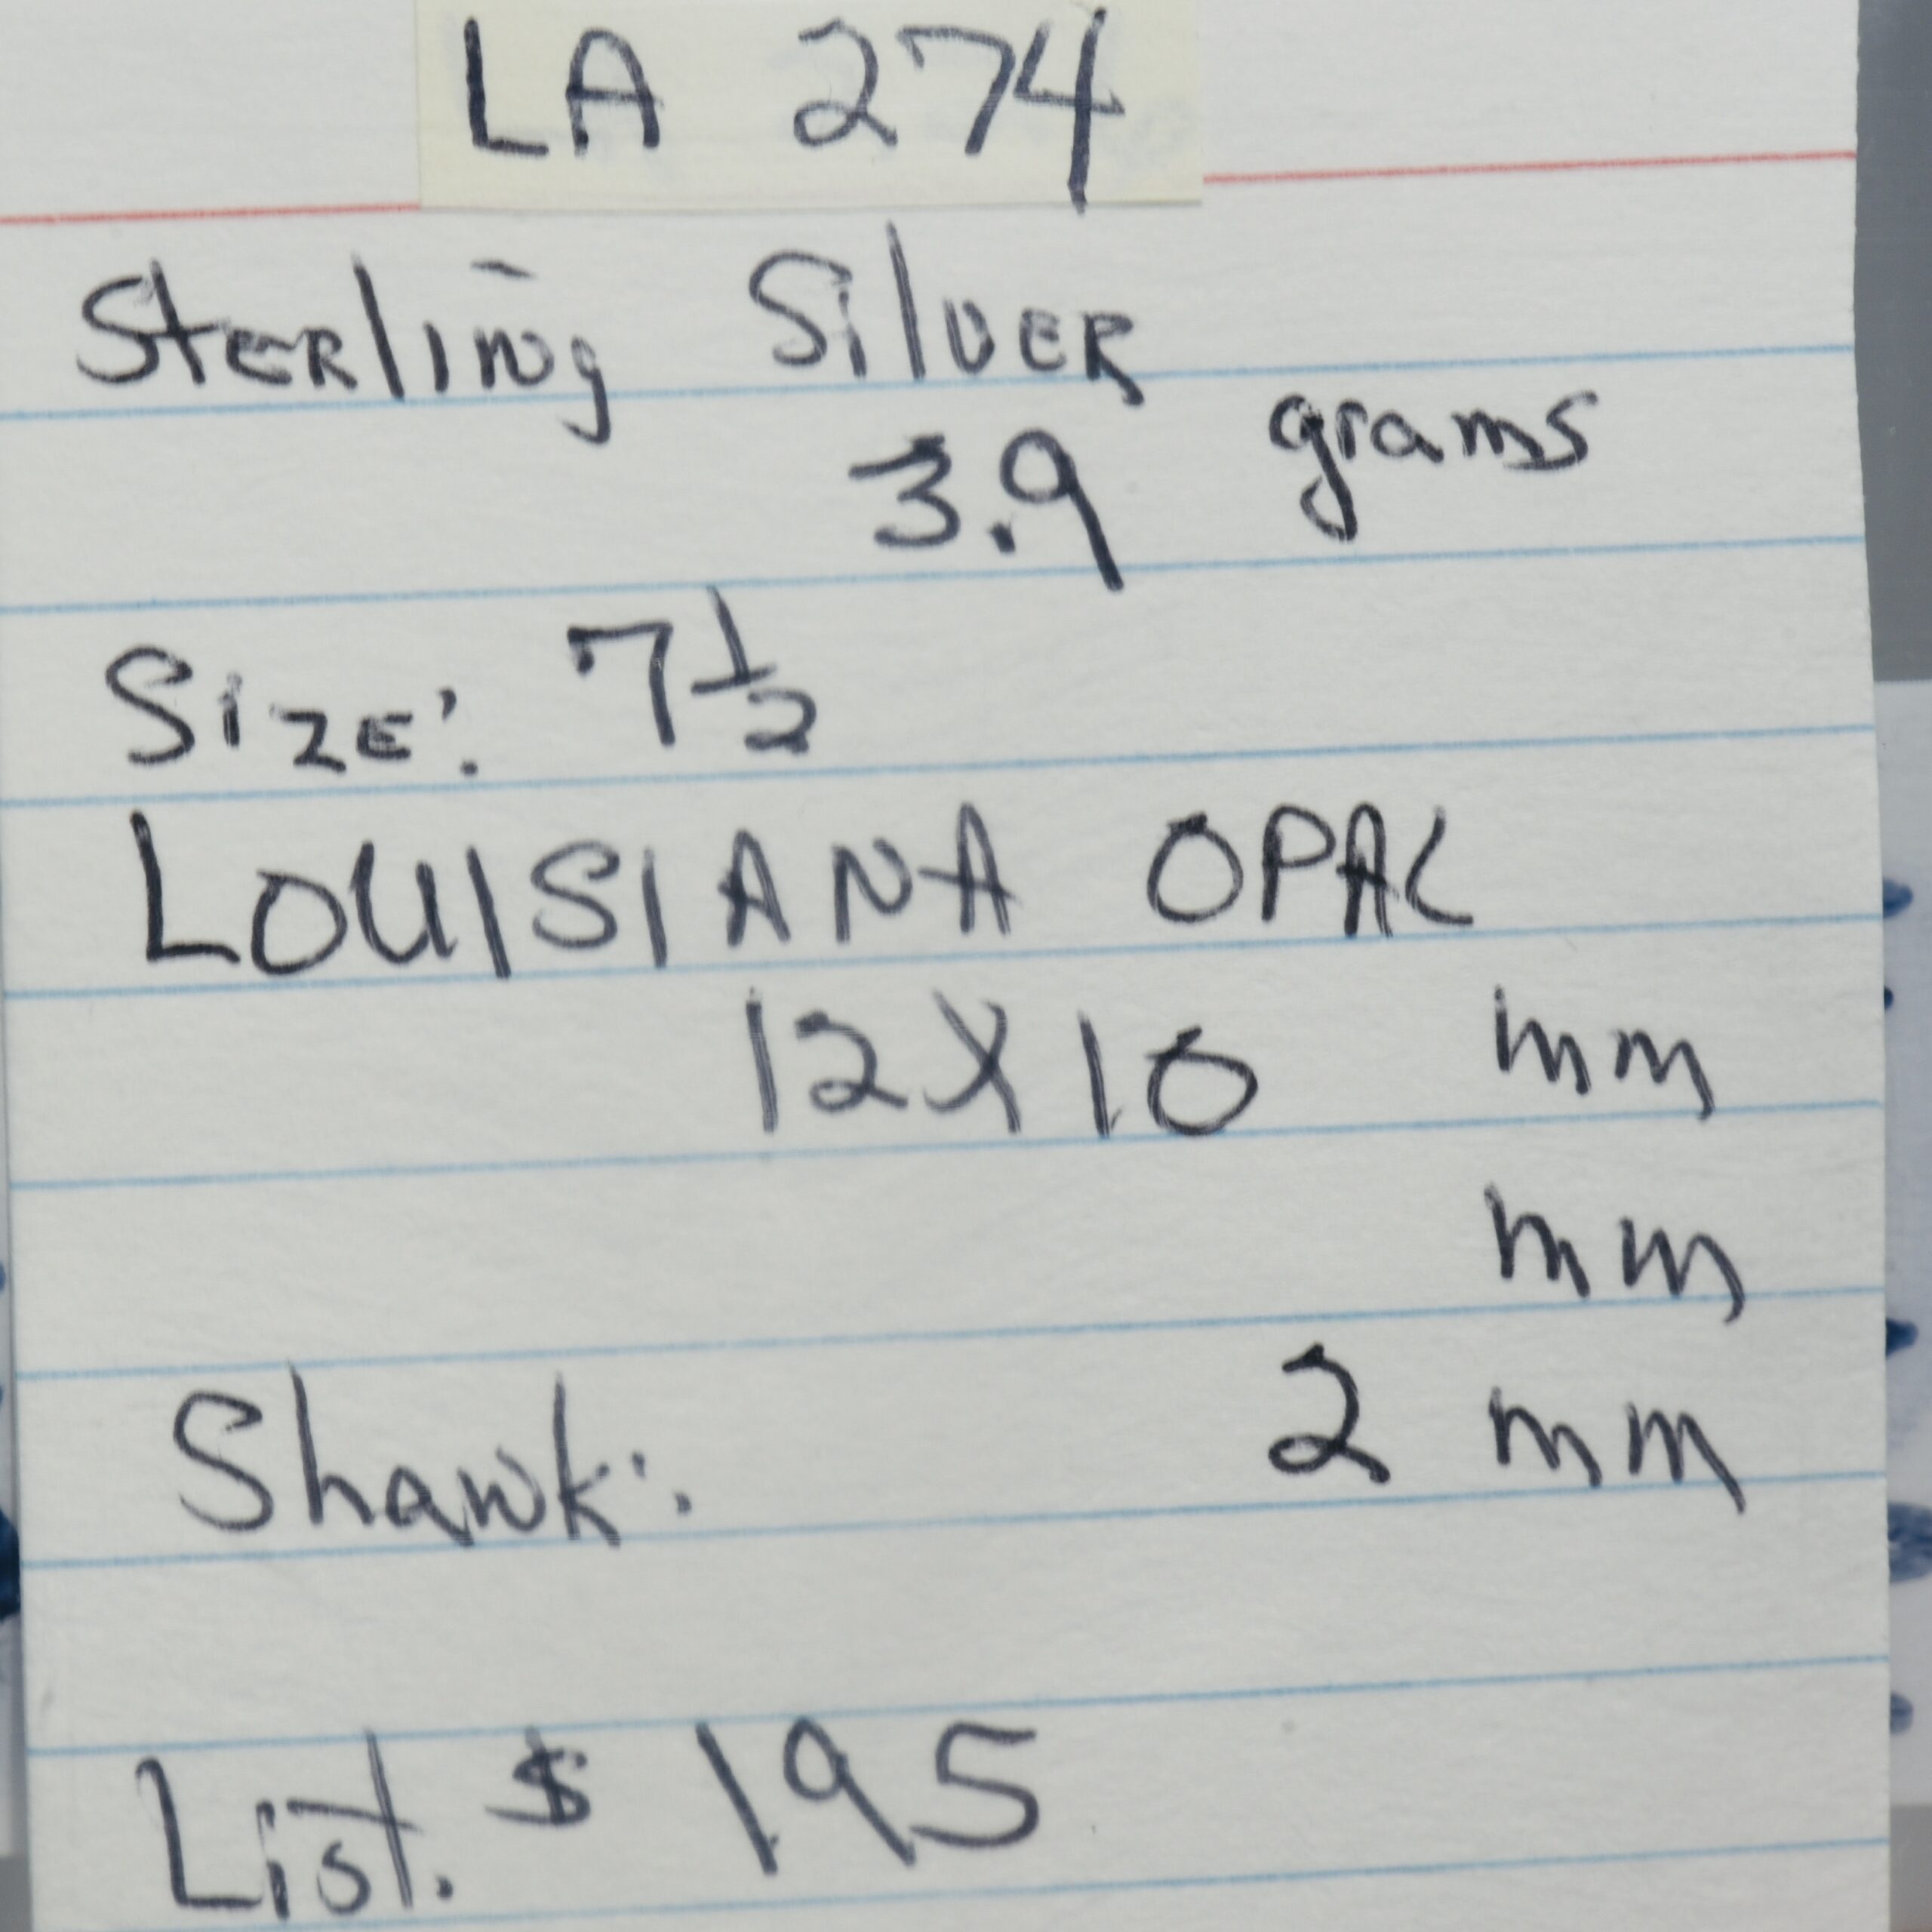 LA 274
Sterling Silver
3.9 grams
Size: 7 1/2
LOUISIANA OPAL
12X10 mm
mm
Shank: 2 mm
List. $ 195